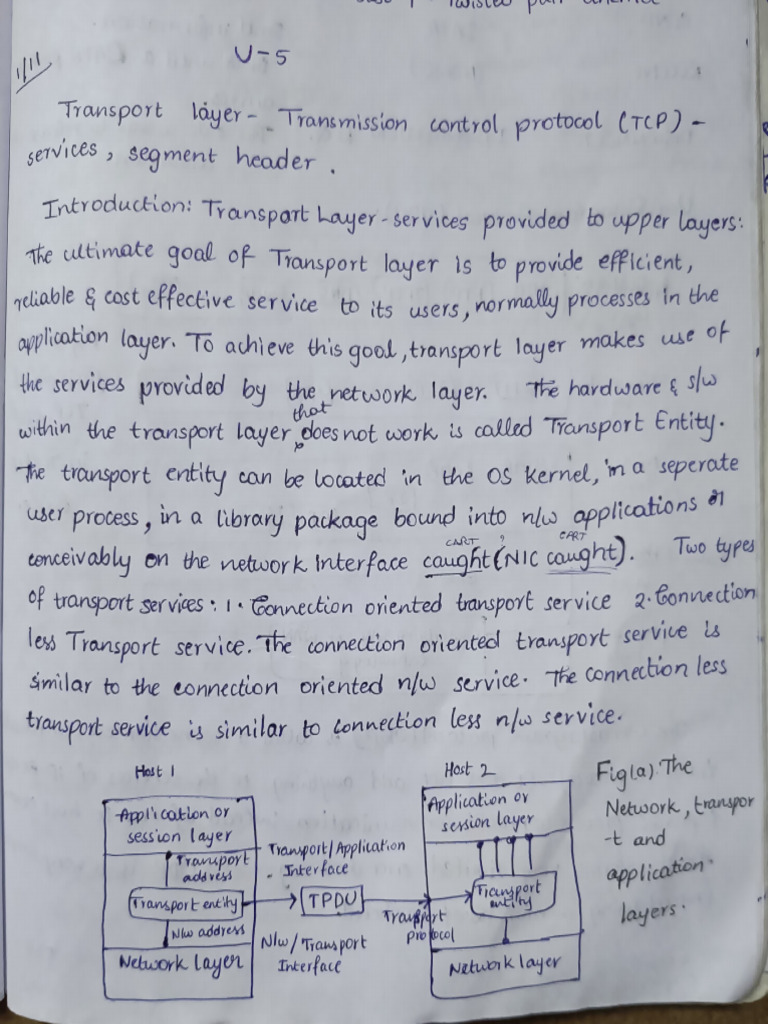 Twisted pair
1/11
U-5
Transport layer - Transmission control protocol (TCP) -
services, segment header.
Introduction: Transport Layer - services provided to upper layers:
The ultimate goal of Transport layer is to provide efficient,
reliable & cost effective service to its users, normally processes in the
application layer. To achieve this goal, transport layer makes use of
the services provided by the network layer. The hardware & s/w
that
within the transport layer does not work is called Transport Entity.
The transport entity can be located in the OS kernel, in a seperate
user process, in a library package bound into n/w applications or
CART ? CART
conceivably on the network interface caught (NIC caught). Two types
of transport services: 1. Connection oriented transport service 2. Connection
less Transport service. The connection oriented transport service is
similar to the connection oriented n/w service. The connection less
transport service is similar to connection less n/w service.
Host 1
Application or
session layer
Transport
address
Transport entity
N/w address
Network layer
Transport/Application
Interface
TPDU
Transport
protocol
N/w/Transport
Interface
Host 2
Application or
session layer
Transport
entity
Network layer
Fig(a). The
Network, transpor
-t and
application
layers.